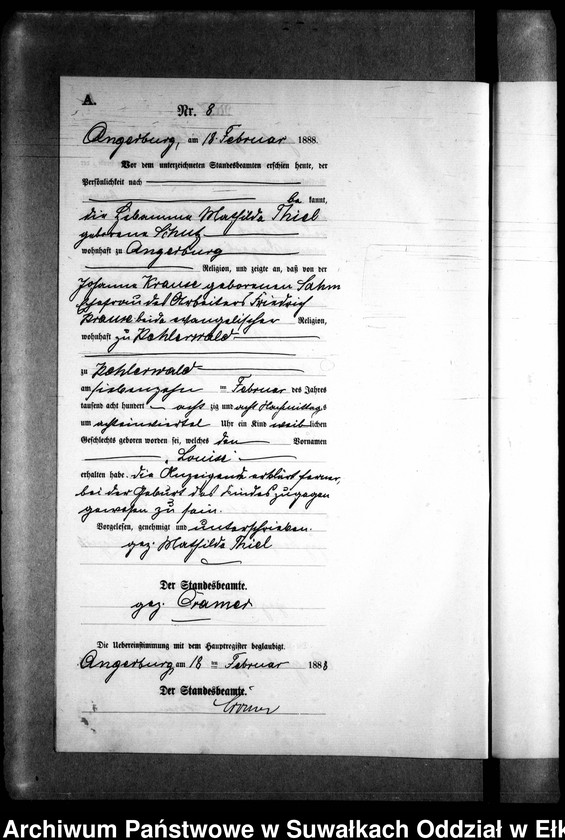 A.
Nr. 8
Angerburg, am 18 Februar 1888.
Vor dem unterzeichneten Standesbeamten erschien heute, der
Persönlichkeit nach
be kannt,
die Hebamme Mathilde Thiel
geborene Schulz
wohnhaft zu Angerburg
Religion, und zeigte an, daß von der
Johanna Krause geborenen Sahm
Ehefrau des Arbeiters Friedrich
Krause beide evangelischer Religion,
wohnhaft zu Kehlerwald
zu Kehlerwald
am siebenzehn ten Februar des Jahres
tausend acht hundert acht zig und acht Nachmittags
um achteinviertel Uhr ein Kind weib lichen
Geschlechts geboren worden sei, welches den Vornamen
Louise
erhalten habe. die Anzeigende erklärt ferner,
bei der Geburt des Kindes zugegen
gewesen zu sein.
Vorgelesen, genehmigt und unterschrieben.
gez. Mathilde Thiel
Der Standesbeamte.
gez. Cramer
Die Uebereinstimmung mit dem Hauptregister beglaubigt.
Angerburg, am 18 ten Februar 1888
Der Standesbeamte.
Cramer
Archiwum Państwowe w Suwałkach Oddział w Ełk